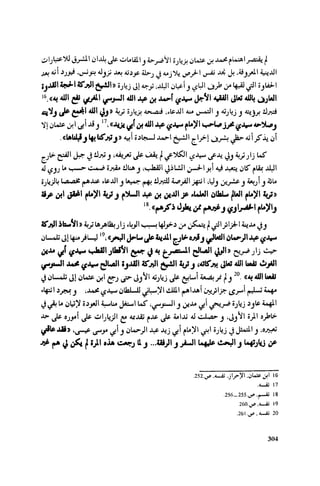 لم يقتصر اهتمام محمد بن عثمان بزيارة الأضرحة و المقامات على بلدان المشرق للاعتبارات
الدينية المعروفة، بل نجد نفس الحرص يلازمه في رحلة عودته بعد نزوله بتونس. فيورد أنه بعد
الحفاوة التي لقيها من طرف الباي و أعيان البلد، توجه إلى زيارة «الشيخ البركة الحجة القدوة
العارف بالله تعالى الفقيه الأجل سيدي أحمد بن عبد الله السوسي المغربي نفع الله به».16
فتبرك برؤيته و زيارته و التمس منه الدعاء. فنصحه بزيارة تربة «ولي الله المجمع على ولايته
وصلاحه سيدي محرز صاحب الإمام سيدي عبد الله بن أبي يزيد».17 وقد أبى ابن عثمان إلا
أن يذكر أنه حظي بشرف إخراج الشيخ احمد لسجادة أبيه «و تبركنا بها و قبلناها».
كما زار تربة ولي يدعى سيدي الكلاعي لم يقف على تعريفه، و تبرك في جبل الفتح خارج
البلد بمقام كان يتعبد فيه أبو الحسن الشاذلي القطب، و هناك مقبرة ضمت حسب ما روي له
مائة و أربعة و عشرين وليا. انتهز الفرصة للتبرك بهم جميعا و الدعاء عندهم مخصصا بالزيارة
«تربة الإمام العالم سلطان العلماء عز الدين بن عبد السلام و تربة الإمام المحقق ابن عرفة
والإمام الحصراوي و غيرهم ممن يطول ذكرهم».18
وفي مدينة الجزائر التي لم يتمكن من دخولها بسبب الوباء، زار بظاهرها تربة «الأستاذ البركة
سيدي عبد الرحمان الثعالبي و قبره خارج المدينة على ساحل البحر».19 ليسافر منها إلى تلمسان
حيث زار ضريح «الولي الصالح المستصرخ به في جميع الأقطار القطب سيدي أبي مدين
الغوث نفعنا الله تعالى ببركاته، و تربة الشيخ البركة القدوة الصالح سيدي محمد السنوسي
نفعنا الله به».20 و لم تمر بضعة أسابيع على زيارته الأولى حتى رجع ابن عثمان إلى تلمسان في
مهمة تسليم أسرى جزائريين أهداهم الملك الإسباني للسلطان سيدي محمد. و بمجرد انتهاء
المهمة عاود زيارة ضريحي أبي مدين و السنوسي. كما استغل مناسبة العودة لإتيان ما بقي في
خاطره المرة الأولى. و حصلت له ندامة على عدم تقديمه مع الزيارات على أموره على حد
تعبيره. و المتمثل في زيارة ابني الإمام أبي زيد عبد الرحمان و أبي موسى عيسى، «فقد عاقني
عن زيارتهما و البحث عليهما السفر و الرفقة... و لما رجعت هذه المرة لم يكن لي هم غير
16 ابن عثمان، الإحراز، نفسه، ص.252.
17 نفسه.
18 نفسه، ص.255-256.
19 نفسه، ص.260.
20 نفسه، ص.261.
304